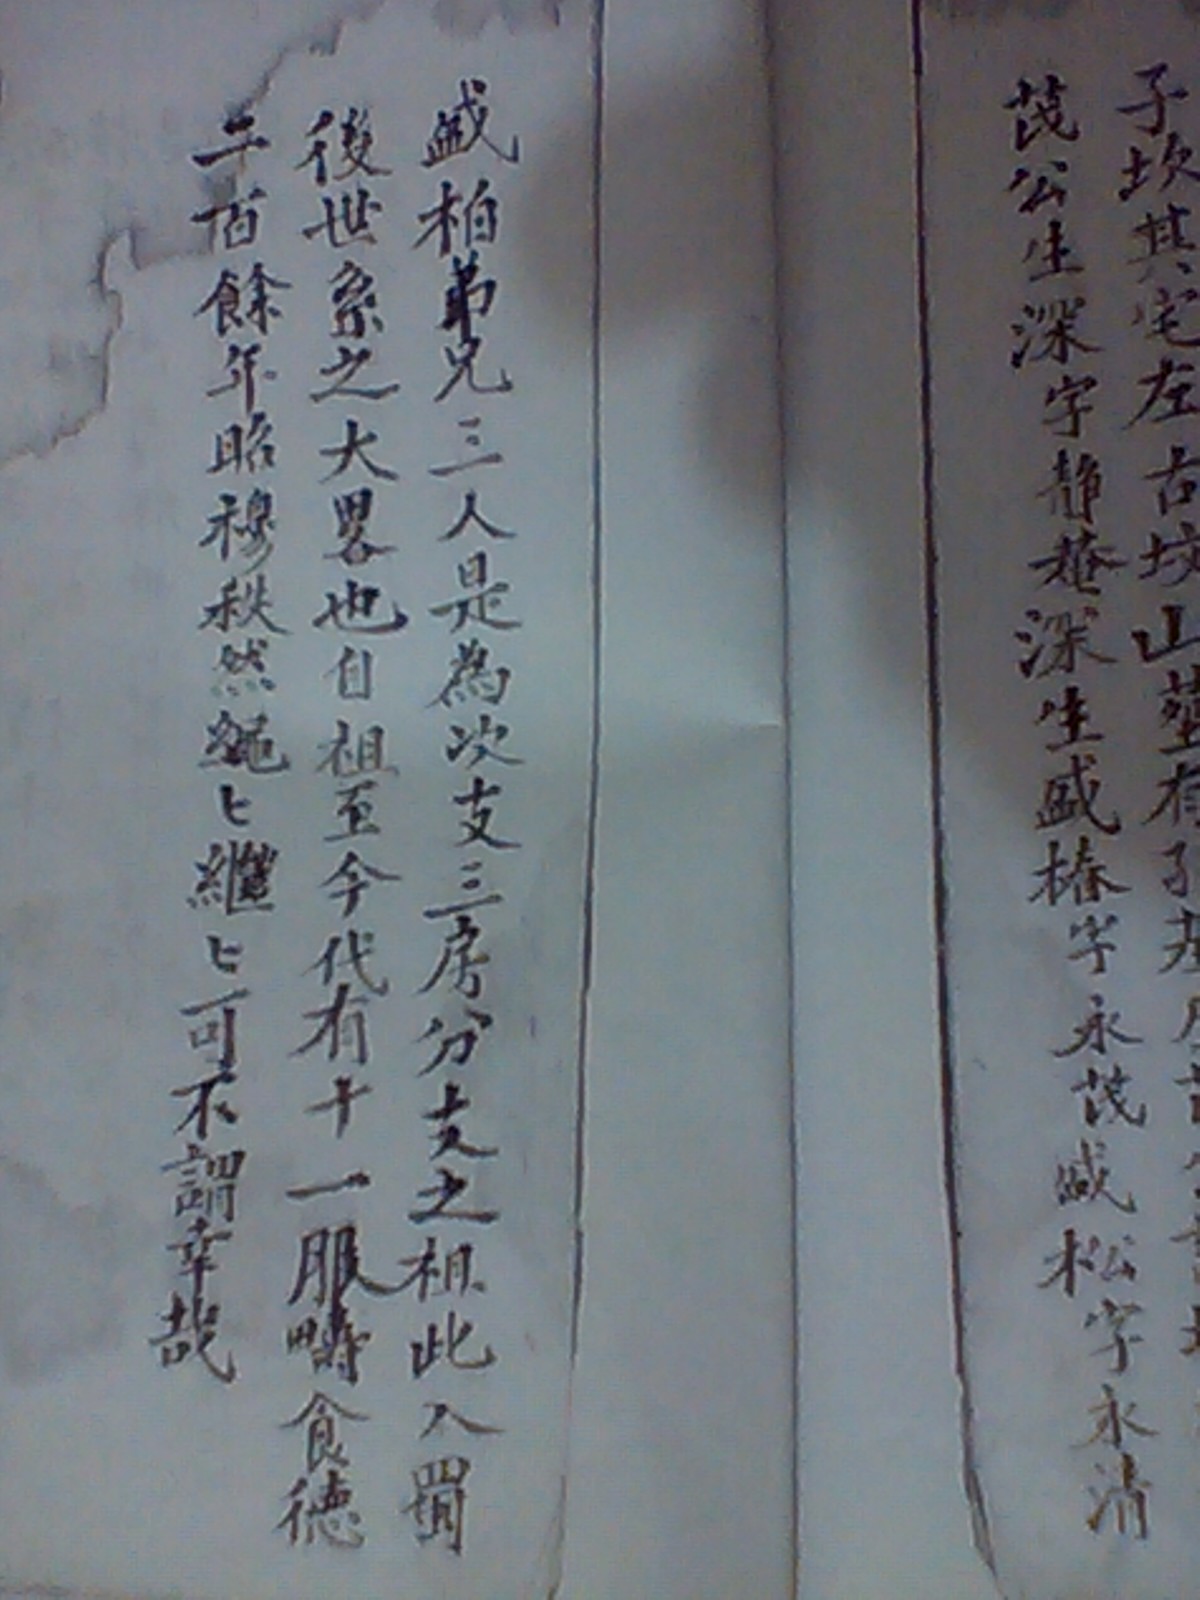 子坎其宅左古坟山茔有孑
茂公生深字静菴深生盛椿字永茂盛松字永清
盛柏弟兄三人是為次支三房分支之祖此入蜀
後世系之大畧也自祖至今代有十一服疇食德
二百餘年昭穆秩然繩〻繼〻可不謂幸哉